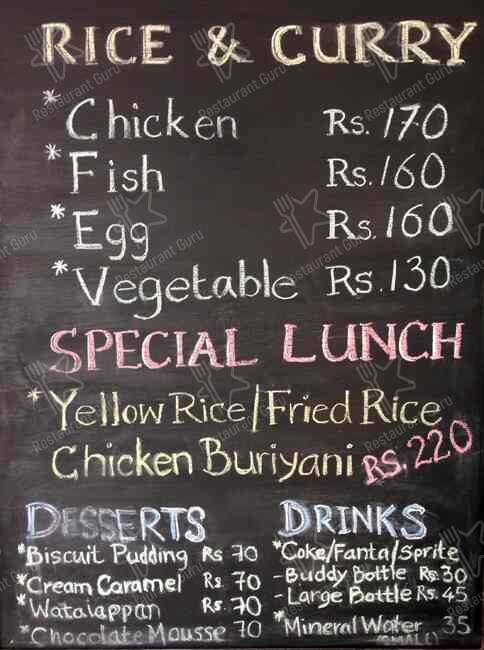 RICE & CURRY
* Chicken Rs. 170
* Fish Rs. 160
* Egg Rs. 160
* Vegetable Rs. 130
SPECIAL LUNCH
* Yellow Rice/Fried Rice
Chicken Buriyani RS. 220
DESSERTS
* Biscuit Pudding Rs 70
* Cream Caramel Rs 70
* Wataiappan Rs. 70
* Chocolate Mousse 70
DRINKS
* Coke/Fanta/Sprite
- Buddy Bottle Rs. 30
- Large Bottle Rs. 45
* Mineral Water 35
(SMALL)
Restaurant Guru